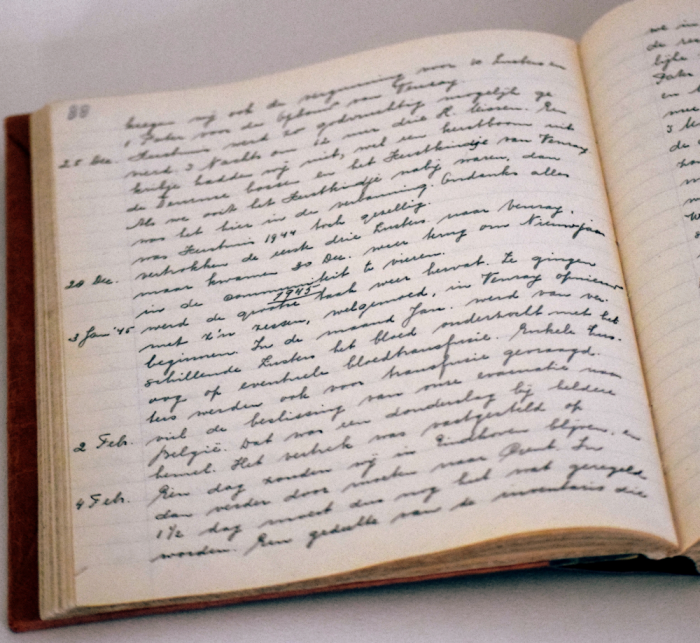 88
kregen wij ook de vergunning voor 10 Zusters en
1 Pater voor den opbouw van Venray.
25 Dec. Kerstmis werd zo godvruchtig mogelijk ge
vierd. 's Nachts om 12 uur drie H. Missen. Een
kribje hadden wij niet, wel een kerstboom uit
de Deurnse bossen en het Kerstkindje van Venray
Als we ooit het Kerstkindje nabij waren, dan
was het hier in de verbanning. Ondanks alles
was Kerstmis 1944 toch gezellig.
28 Dec. vertrokken de eerste drie Zusters naar Venray,
maar kwamen 30 Dec. weer terug om Nieuwjaar
in de communiteit te vieren.
1945
3 Jan '45 werd de grote taak weer hervat. Ze gingen
met z'n zessen, welgemoed, in Venray opnieuw
beginnen. In de maand Jan. werd van ver
schillende Zusters het bloed onderzocht met het
oog op eventuele bloedtransfusie. Enkele Zus-
ters werden ook voor transfusie gevraagd.
2 Feb. viel de beslissing van onze evacuatie naar
België. Dat was een donderslag bij heldere
hemel. Het vertrek was vastgesteld op
4 Feb. Eén dag zouden wij in Eindhoven blijven, en
dan verder door moeten naar Gent. In
1 1/2 dag moest dus nog heel wat geregeld
worden. Een gedeelte van de inventaris die